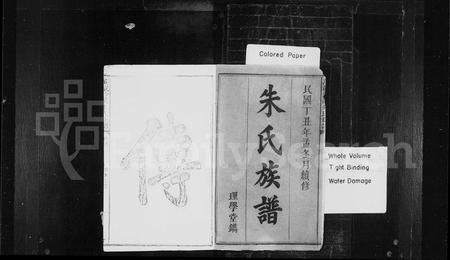 Colored Paper
民國丁丑年孟冬月續修
朱氏族譜
理學堂鐫
Whole Volume
Tight Binding
Water Damage
FamilySearch